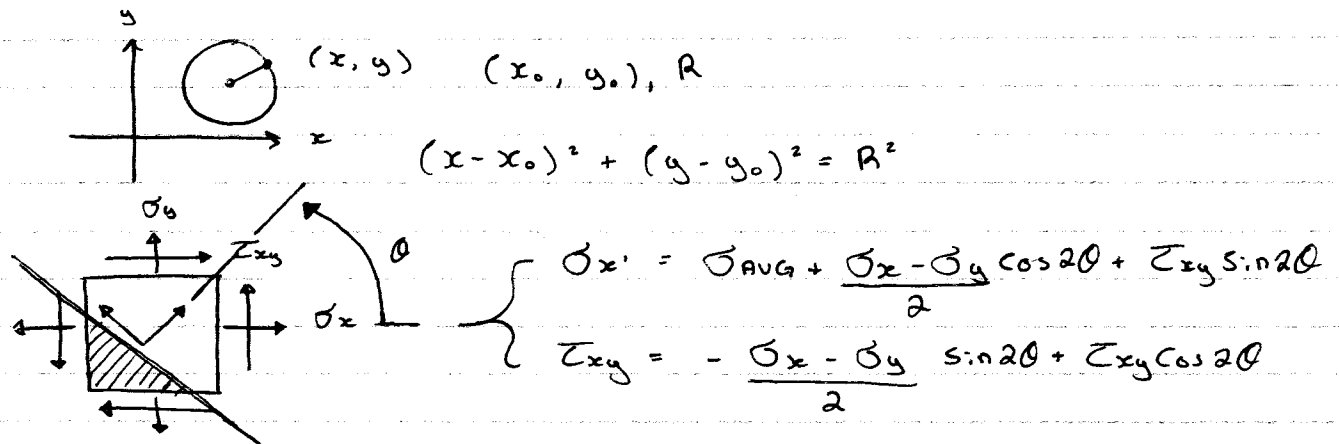 y
(x, y) (x₀, y₀), R
x
(x-x₀)² + (y-y₀)² = R²
σy
τxy
θ
σx
σx' = σAVG + (σx - σy)/2 cos 2θ + τxy sin 2θ
τxy = - (σx - σy)/2 sin 2θ + τxy cos 2θ